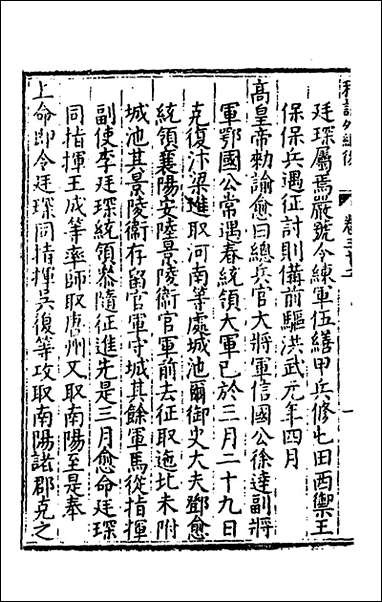 稗說外編後 卷三十二
廷琛屬焉嚴號令練軍伍繕甲兵修屯田西禦王
保保兵遇征討則備前驅洪武元年四月
高皇帝勑諭愈曰總兵官大將軍信國公徐達副將
軍鄂國公常遇春統領大軍已於三月二十九日
克復汴梁進取河南等處城池爾御史大夫鄧愈
統領襄陽安陸景陵衛官軍前去征取迤北未附
城池其景陵衛存留官軍守城其餘軍馬從指揮
副使李廷琛統領叅隨征進先是三月愈命廷琛
同指揮王成等率師取唐州又取南陽至是奉
上命即令廷琛同指揮吳復等攻取南陽諸郡克之